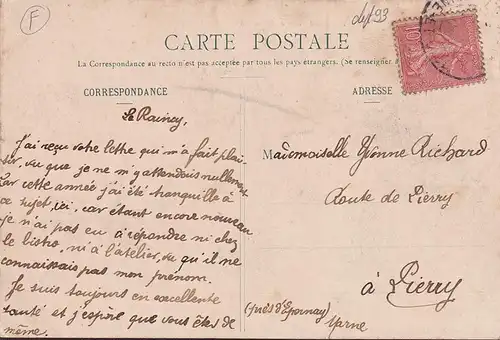 F
dep 93
CARTE POSTALE
La Correspondance au recto n'est pas acceptée par tous les pays étrangers. (Se renseigner à
CORRESPONDANCE
Le Raincy,
J'ai reçu votre lettre qui m'a fait plai-
sir, vu que je ne m'y attendais nullement
Car cette année j'ai été tranquille à
ce sujet, ici, car étant encore nouveau
je n'ai pas eu à répondre ni chez
le bistro, ni à l'atelier, vu qu'il ne
connaissais pas mon prénom.
Je suis toujours en excellente
santé et j'espère que vous êtes de
même.
ADRESSE
Mademoiselle Yvonne Richard
Route de Pierry
à Pierry
(près d'Epernay)
Marne
10